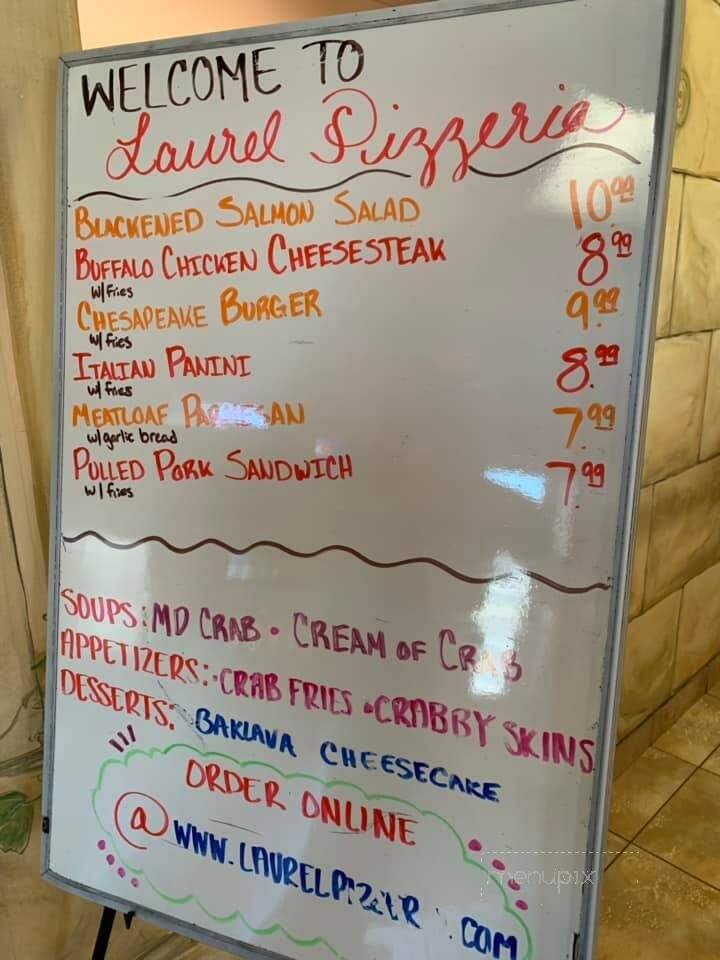 WELCOME TO
Laurel Pizzeria
BLACKENED SALMON SALAD 10.99
BUFFALO CHICKEN CHEESESTEAK 8.99
w/fries
CHESAPEAKE BURGER 9.99
w/ fries
ITALIAN PANINI 8.99
w/ fries
MEATLOAF PARMESAN 7.99
w/garlic bread
PULLED PORK SANDWICH 7.99
w/ fries
SOUPS: MD CRAB • CREAM OF CRAB
APPETIZERS: •CRAB FRIES •CRABBY SKINS
DESSERTS: BAKLAVA CHEESECAKE
ORDER ONLINE
@ WWW. .COM
menupix